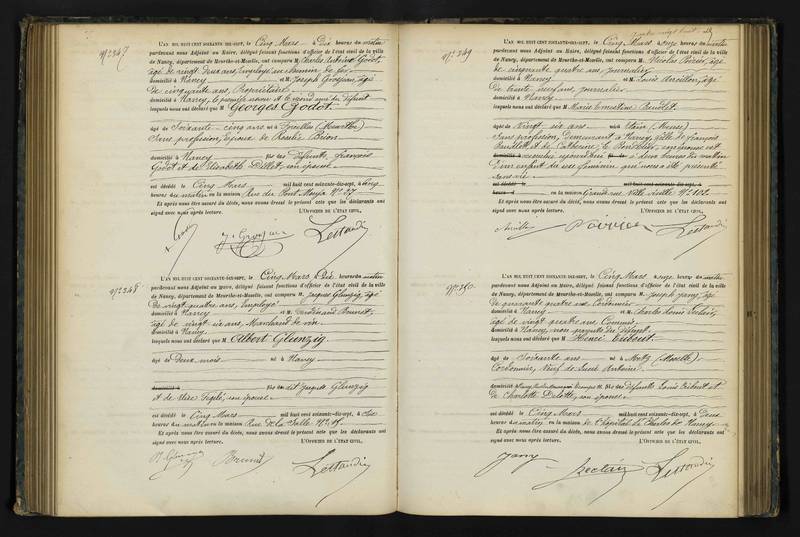 Nº 247
L'AN MIL HUIT CENT SOIXANTE-DIX-SEPT, le Cinq Mars à Dix heures du matin
pardevant nous Adjoint au Maire, délégué faisant fonctions d'officier de l'état civil de la ville
de Nancy, département de Meurthe-et-Moselle, ont comparu M. Charles Antoine Godot
âgé de vingt deux ans, Employé au chemin de fer
domicilié à Nancy et M. Joseph Grosjean, âgé
de cinquante ans, Propriétaire
domicilié à Nancy, le premier neveu et le second ami du défunt
lesquels nous ont déclaré que M. Georges Godot
âgé de Soixante-cinq ans né à (Meurthe)
Sans profession, époux de Rosalie Brion
domicilié à Nancy fils des défunts, François
Godot et de Elisabeth Dillot, son épouse
est décédé le Cinq Mars mil huit cent soixante-dix-sept, à Cinq
heures du matin en la maison, Rue du Pont Mouja Nº 27
Et après nous être assuré du décès, nous avons dressé le présent acte que les déclarants ont
signé avec nous après lecture. L'OFFICIER DE L'ÉTAT CIVIL,
J. Grosjean
Nº 248
L'AN MIL HUIT CENT SOIXANTE-DIX-SEPT, le Cinq Mars à Dix heures du matin
pardevant nous Adjoint au Maire, délégué faisant fonctions d'officier de l'état civil de la ville
de Nancy, département de Meurthe-et-Moselle, ont comparu M. Jacques Glunzig âgé
de vingt quatre ans, Employé
domicilié à Nancy et M. Ferdinand Brunet,
âgé de vingt six ans, Marchand de vin
domicilié à Nancy
lesquels nous ont déclaré que M. Albert Glunzig
âgé de Deux mois né à Nancy
domicilié à fils du dit Jacques Glunzig
et de son épouse
est décédé le Cinq Mars mil huit cent soixante-dix-sept, à Six
heures du matin en la maison Rue de la Salle Nº
Et après nous être assuré du décès, nous avons dressé le présent acte que les déclarants ont
signé avec nous après lecture. L'OFFICIER DE L'ÉTAT CIVIL,
Brunet
Nº 249
L'AN MIL HUIT CENT SOIXANTE-DIX-SEPT, le Cinq Mars à onze heures du matin
pardevant nous Adjoint au Maire, délégué faisant fonctions d'officier de l'état civil de la ville
de Nancy, département de Meurthe-et-Moselle, ont comparu M. Nicolas âgé
de cinquante quatre ans, journalier
domicilié à Nancy et M. Louis âgé
de trente neuf ans, journalier
domicilié à Nancy
lesquels nous ont déclaré que M. Marie Ernestine
âgée de Vingt six ans née à Etain (Meuse)
Sans profession, demeurant à Nancy, fille de François
et de Catherine son épouse est
domicilié à accouchée à deux heures du matin
d'un enfant du sexe féminin qui nous a été présenté
sans vie
est décédé le mil huit cent soixante-dix-sept, à
heures d en la maison Grande rue Ville vieille Nº 102
Et après nous être assuré du décès, nous avons dressé le présent acte que les déclarants ont
signé avec nous après lecture. L'OFFICIER DE L'ÉTAT CIVIL,
Nº 250
L'AN MIL HUIT CENT SOIXANTE-DIX-SEPT, le Cinq Mars à onze heures du matin
pardevant nous Adjoint au Maire, délégué faisant fonctions d'officier de l'état civil de la ville
de Nancy, département de Meurthe-et-Moselle, ont comparu M. Joseph âgé
de quarante quatre ans, Cordonnier
domicilié à Nancy et M. Charles Louis Leclaire,
âgé de vingt quatre ans, Commis
domicilié à Nancy, non parents du défunt
lesquels nous ont déclaré que M. Henri
âgé de Soixante ans né à Metz (Moselle)
Cordonnier, Veuf de Antoine
domicilié à Nancy fils des défunts Louis et
de Charlotte Delotte, son épouse
est décédé le Cinq Mars mil huit cent soixante-dix-sept, à Deux
heures du matin en la maison de l'hôpital St Charles de Nancy
Et après nous être assuré du décès, nous avons dressé le présent acte que les déclarants ont
signé avec nous après lecture. L'OFFICIER DE L'ÉTAT CIVIL,
Leclair